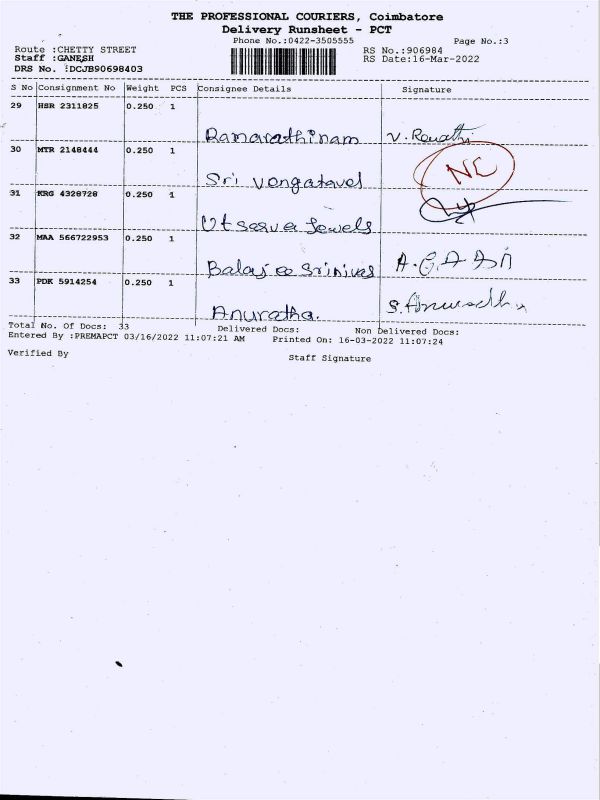 THE PROFESSIONAL COURIERS, Coimbatore
Delivery Runsheet - PCT
Phone No.:0422-3505555 Page No.:3
Route :CHETTY STREET RS No.:906984
Staff :GANESH RS Date:16-Mar-2022
DRS No. :DCJB90698403
S No Consignment No Weight PCS Consignee Details Signature
29 HSR 2311825 0.250 1
Ramarathinam V. Revathi
30 MTR 2148444 0.250 1 NC
Sri vengatavel
31 KRG 4328728 0.250 1
Utsava Jewels
32 MAA 566722953 0.250 1
Balaj ee Srinivas
33 PDK 5914254 0.250 1
Anuratha. S. Anuradha
Total No. Of Docs: 33 Delivered Docs: Non Delivered Docs:
Entered By :PREMAPCT 03/16/2022 11:07:21 AM Printed On: 16-03-2022 11:07:24
Verified By Staff Signature